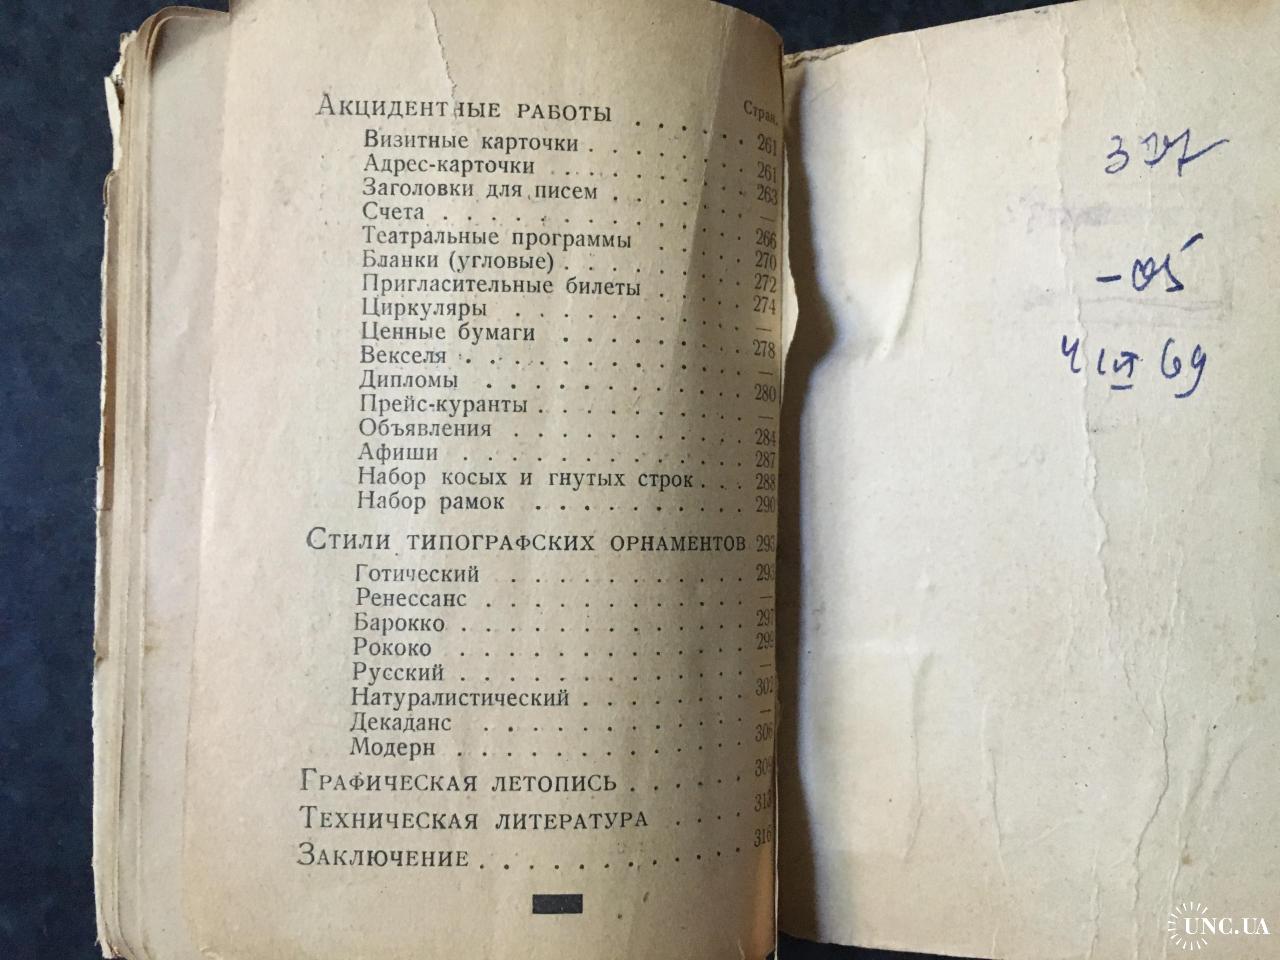 Стран.
Акцидентные работы . . . . . . 261
Визитные карточки . . . . . . . 261
Адрес-карточки . . . . . . . . 263
Заголовки для писем . . . . . . —
Счета . . . . . . . . . . . . 266
Театральные программы . . . . 270
Бланки (угловые) . . . . . . . 272
Пригласительные билеты . . . . 274
Циркуляры . . . . . . . . . . —
Ценные бумаги . . . . . . . . 278
Векселя . . . . . . . . . . . —
Дипломы . . . . . . . . . . . 280
Прейс-куранты . . . . . . . . —
Объявления . . . . . . . . . . 284
Афиши . . . . . . . . . . . . 287
Набор косых и гнутых строк . . . 288
Набор рамок . . . . . . . . . 290
Стили типографских орнаментов 293
Готический . . . . . . . . . . 293
Ренессанс . . . . . . . . . . —
Барокко . . . . . . . . . . . 297
Рококо . . . . . . . . . . . 299
Русский . . . . . . . . . . . —
Натуралистический . . . . . . 302
Декаданс . . . . . . . . . . —
Модерн . . . . . . . . . . . 306
Графическая летопись . . . . . 309
Техническая литература . . . . 313
Заключение . . . . . . . . . . 316
-05
69
UNC.UA